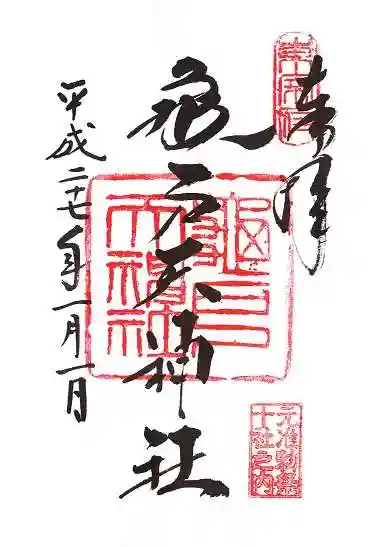 奉拝
東宰府
亀戸天神社
亀戸天神社
元准勅祭
十社之内
平成二十七年一月一日